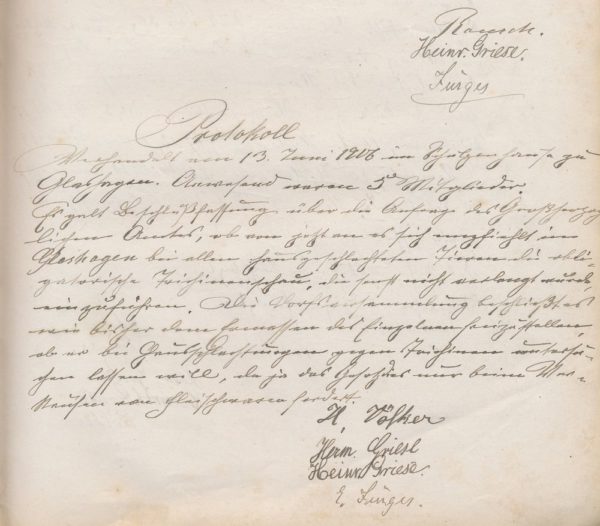 Rausch.
Heinr. Griese.
Jürges
Protokoll
Verhandelt am 13. Juni 1906 im Schulzenhause zu
Glashagen. Anwesend waren 5 Mitglieder.
Es galt Beschlußfassung über die Anfrage des Großherzog-
lichen Amtes, ob von jetzt an es sich empfiehlt im
Glashagen bei allen hausgeschlachteten Tieren die obli-
gatorische Trichinenschau, die sonst nicht verlangt wurde,
einzuführen. Die Dorfsversammlung beschließt es
wie bisher dem Ermessen des Einzelnen hinzustellen,
ob er bei Hausschlachtungen gegen Trichinen untersu-
chen lassen will, da ja das Gesetz es nur beim Ver-
kaufen von Fleischwaren fordert.
H. Völker
Herm. Griese
Heinr. Griese.
E. Jürges.